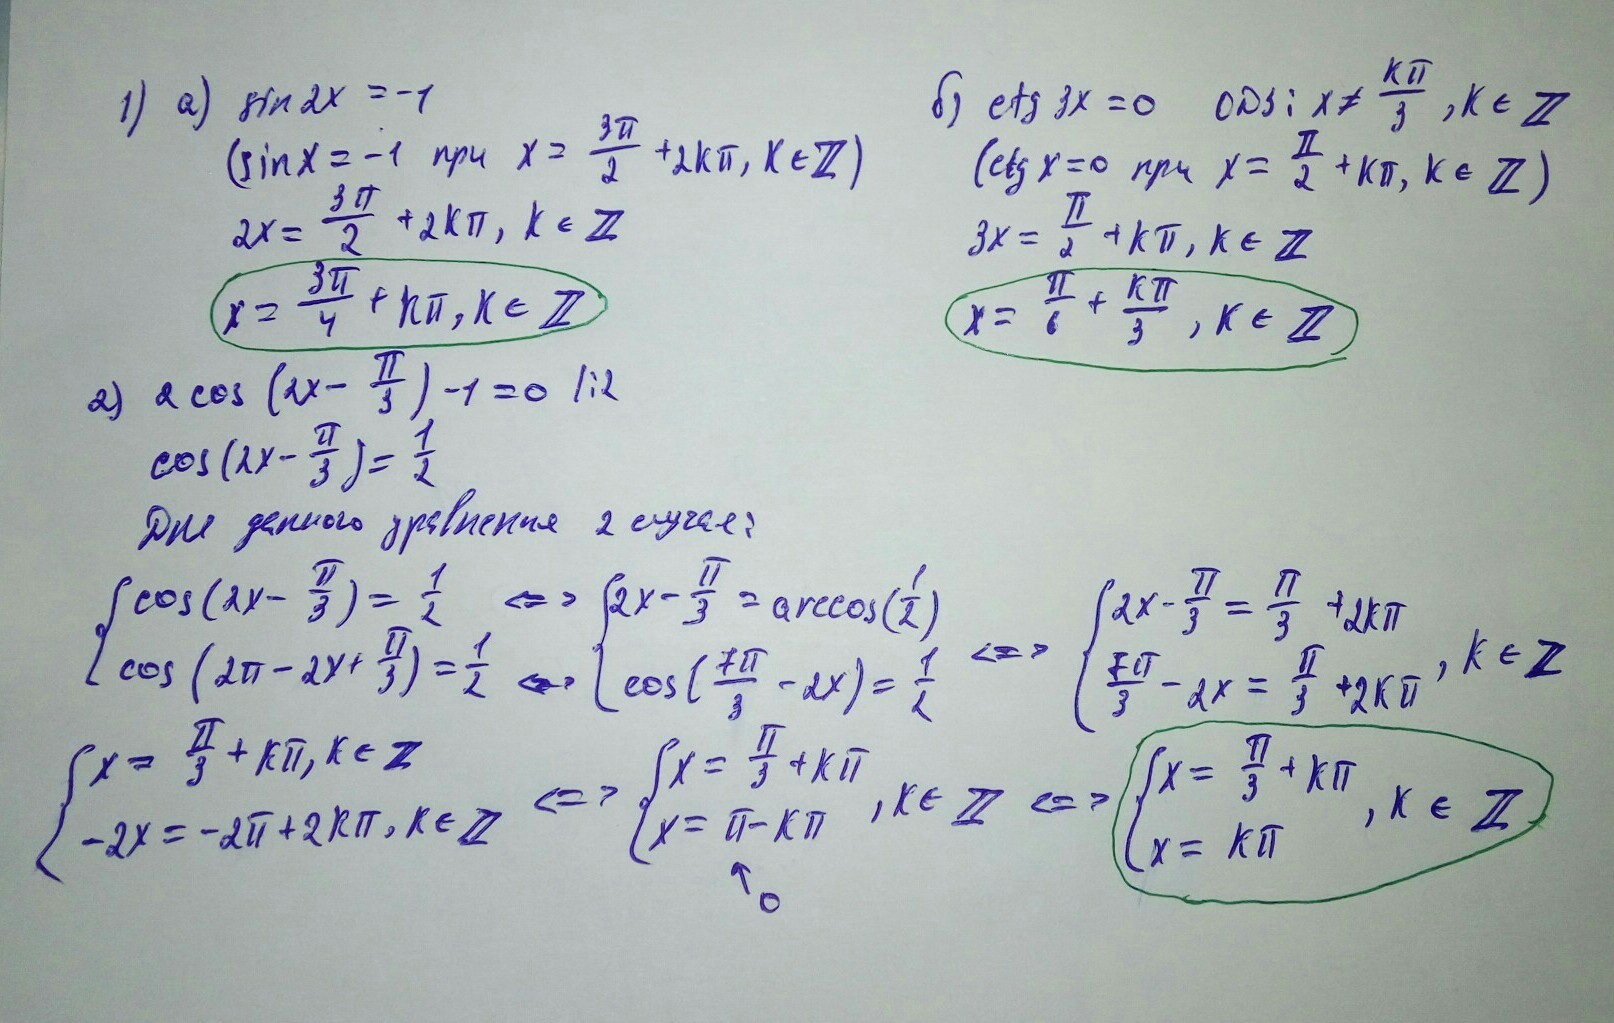 1) а) sin 2x = -1
(sin x = -1 при x = 3π/2 + 2kπ, k ∈ ℤ)
2x = 3π/2 + 2kπ, k ∈ ℤ
x = 3π/4 + kπ, k ∈ ℤ
б) ctg 3x = 0 ОДЗ: x ≠ kπ/3, k ∈ ℤ
(ctg x = 0 при x = π/2 + kπ, k ∈ ℤ)
3x = π/2 + kπ, k ∈ ℤ
x = π/6 + kπ/3, k ∈ ℤ
2) 2 cos (2x - π/3) - 1 = 0 |:2
cos (2x - π/3) = 1/2
Для данного уравнения 2 случая:
{ cos (2x - π/3) = 1/2 <=> { 2x - π/3 = arccos (1/2) <=> { 2x - π/3 = π/3 + 2kπ
cos (2π - 2x + π/3) = 1/2 <=> cos (7π/3 - 2x) = 1/2 7π/3 - 2x = π/3 + 2kπ , k ∈ ℤ
{ x = π/3 + kπ, k ∈ ℤ <=> { x = π/3 + kπ <=> { x = π/3 + kπ
-2x = -2π + 2kπ, k ∈ ℤ x = π - kπ , k ∈ ℤ x = kπ , k ∈ ℤ
↑ 0